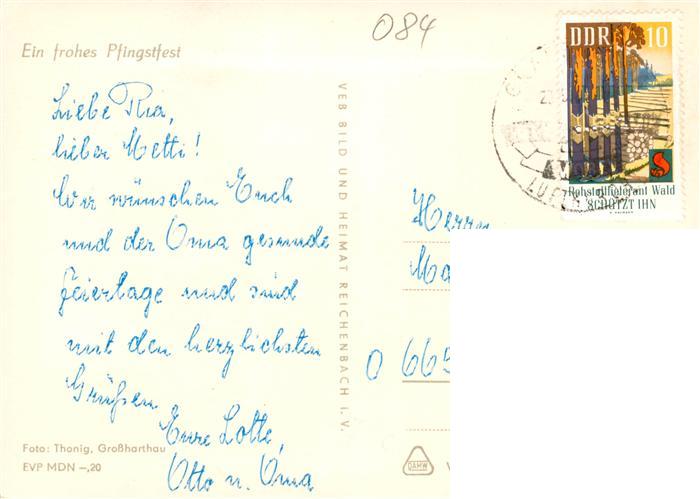 084
Ein frohes Pfingstfest
DDR 10
Rohstofflieferant Wald
SCHÜTZT IHN
Liebe Ria,
lieber Metti!
Wir wünschen Euch
und der Oma gesunde
Feiertage und sind
mit den herzlichsten
Grüßen
Eure Lotte,
Otto u. Oma
VEB BILD UND HEIMAT REICHENBACH i. V.
Herrn
Ma
O 665
Foto: Thonig, Großharthau
EVP MDN –,20
DAMW
V